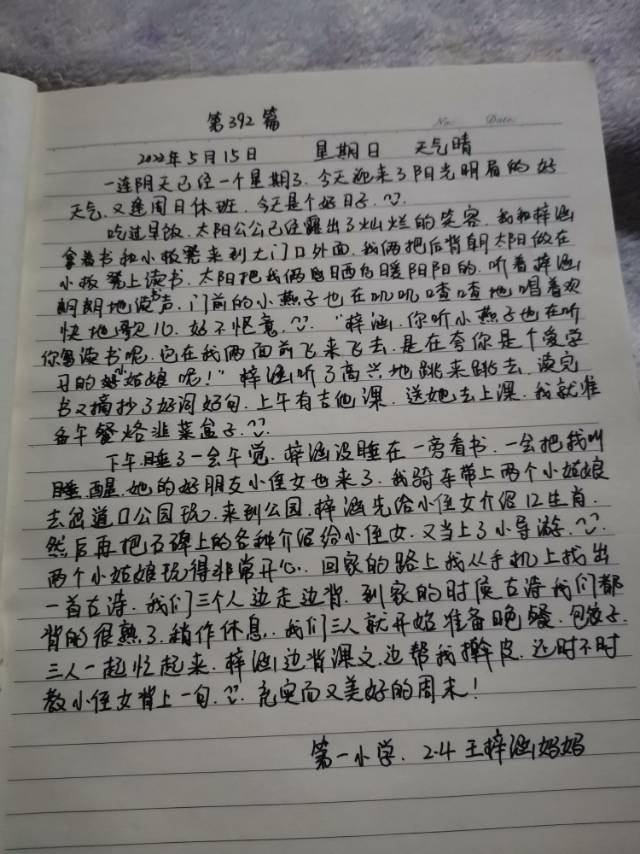 第392篇
No. Date.
2022年5月15日 星期日 天气晴
一连阴天已经一个星期了,今天迎来了阳光明眉的好
天气,又逢周日休班,今天是个好日子。
吃过早饭,太阳公公已经露出了灿烂的笑容,我和梓涵
拿着书和小板凳来到大门口外面,我俩把后背朝太阳做在
小板凳上读书,太阳把我俩晒的暖阳阳的,听着梓涵
朗朗地读书声,门前的小燕子也在叽叽喳喳地唱着欢
快地歌儿,好不惬意。"梓涵,你听小燕子也在听
你读书呢,它在我俩面前飞来飞去,是在夸你是个爱学
习的小姑娘呢!"梓涵听了高兴地跳来跳去,读完
书又摘抄了好词好句,上午有吉他课,送她去上课,我就准
备午餐烙韭菜盒子。
下午睡了一会午觉,梓涵没睡在一旁看书,一会把我叫
睡醒,她的好朋友小侄女也来了,我骑车带上两个小姑娘
去岔道口公园玩,来到公园,梓涵先给小侄女介绍12生肖,
然后再把石碑上的各种介绍给小侄女,又当上了小导游。
两个小姑娘玩得非常开心,回家的路上我从手机上找出
一首古诗,我们三个人边走边背,到家的时候古诗我们都
背的很熟了,稍作休息,我们三人就开始准备晚餐,包饺子,
三人一起忙起来,梓涵边背课文,边帮我擀皮,还时不时
教小侄女背上一句。充实而又美好的周末!
第一小学,2.4王梓涵妈妈